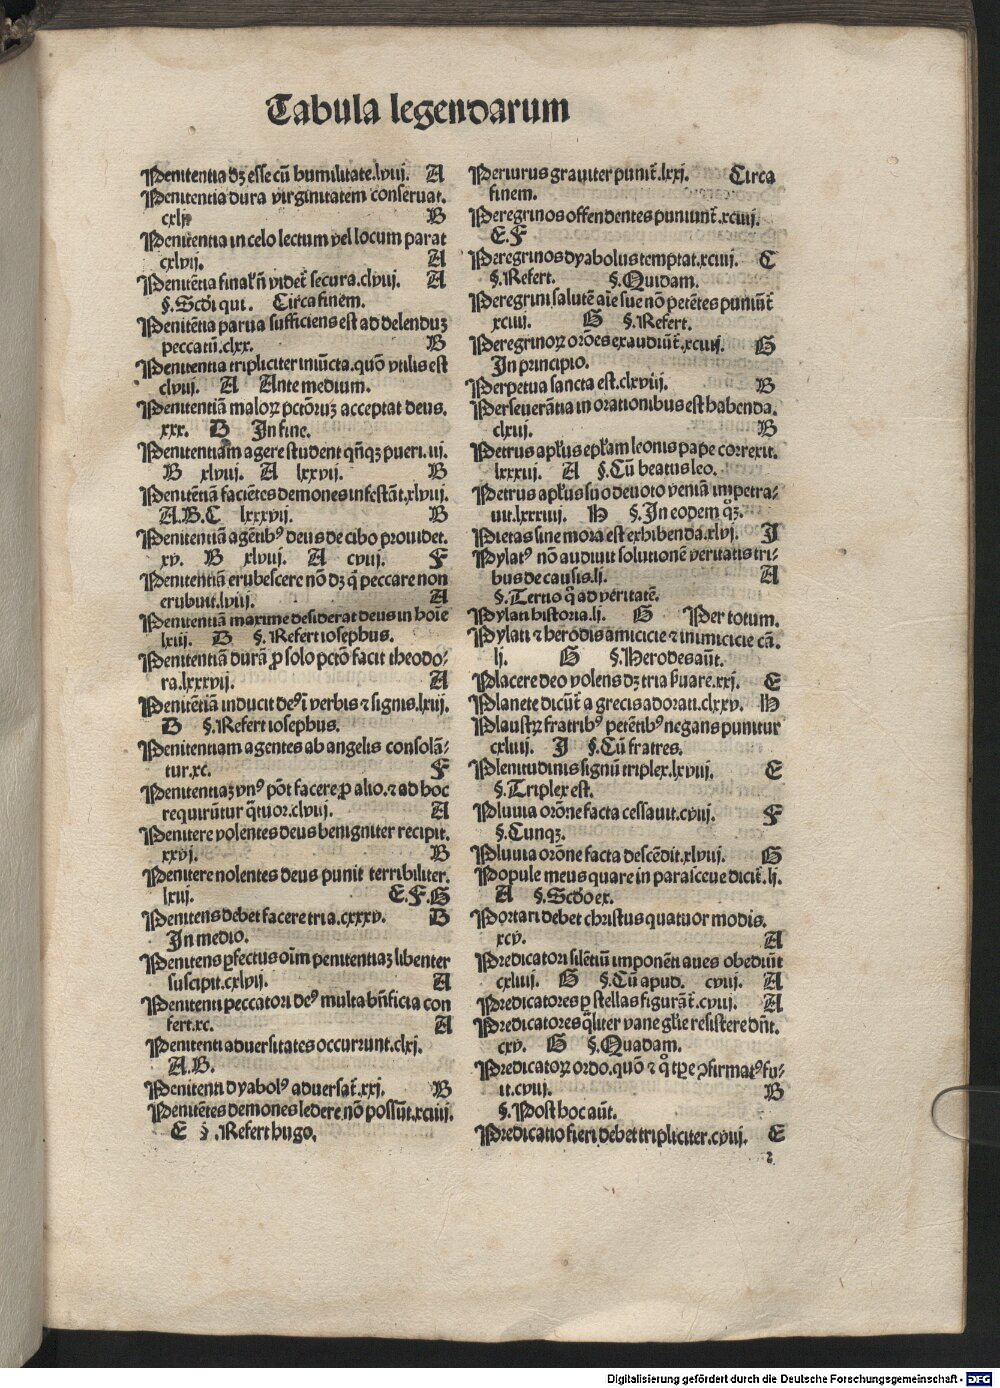 Tabula legendarum
Penitentia dꝫ esse cū humilitate.lviij. A
Penitentia dura virginitatem conseruat.
cxlij. B
Penitentia in celo lectum vel locum parat
cxlvij. A
Penitētia finalr̄ n̄ videt̄ secura.clviij. A
§.Scd̄i qui. Circa finem.
Penitētia parua sufficiens est ad delenduꝫ
peccatū.clxx. B
Penitentia tripliciter inūcta.quō vtilis est
clviij. A Ante medium.
Penitentiā maloꝝ pctōruꝫ acceptat deus.
xxx. D In fine.
Penitentiam agere student qn̄qꝫ pueri.iij.
B xlviij. A lxxvij. B
Penitētiā faciētes demones infestāt.xlviij.
A.B.C lxxxvij. B
Penitentiā agētibꝰ deus de cibo prouidet.
xv. B xlviij. A cviij. F
Penitentiā erubescere nō dꝫ q̄ peccare non
erubuit.lviij. A
Penitentiā maxime desiderat deus in hoīe
lxiij. D §.Refert iosephus.
Penitentiā durā ꝓ solo pctō facit theodo⸗
ra.lxxxvij. A
Penitētiā inducit deꝰ ī verbis ⁊ signis.lxiij.
D §.Refert iosephus.
Penitentiam agentes ab angelis consolā⸗
tur.xc. F
Penitentiaꝫ vnꝰ pōt facere ꝓ alio.⁊ ad hoc
requirūtur q̄tuor.clviij. A
Penitere volentes deus benigniter recipit.
xxvj. B
Penitere nolentes deus punit terribiliter.
lxiij. E.F.G
Penitens debet facere tria.cxxxv. B
In medio.
Penitens ꝑfectus oīm penitentiaꝫ libenter
suscipit.cxlvij. A
Penitenti peccatori deꝰ multa bn̄ficia con
fert.xc. A
Penitenti aduersitates occurrunt.clxj.
A.B.
Penitenti dyabolꝰ aduersat̄.xxj. B
Penitētes demones ledere nō possūt.xciiij.
E §.Refert hugo.
Periurus grauiter punit̄.lxxj. Circa
finem.
Peregrinos offendentes puniunt̄.xciiij.
E.F
Peregrinos dyabolus temptat.xciiij. C
§.Refert. §.Quidam.
Peregrini salutē aīe sue nō petētes puniūt̄
xciiij. G §.Refert.
Peregrinoꝝ orōes exaudiūt̄.xciiij. G
In principio.
Perpetua sancta est.clxviij. B
Perseuerātia in orationibus est habenda.
clxij. B
Petrus apl̄us epl̄am leonis pape correxit.
lxxxij. A §.Cū beatus leo.
Petrus apl̄us suo deuoto veniā impetra⸗
uit.lxxxiij. H §.In eodem q̄ꝫ.
Pietas sine mora est exhibenda.xlvj. I
Pylatꝰ nō audiuit solutionē veritatis tri⸗
bus de causis.lj. A
§.Tertio q̄ ad veritatē.
Pylati historia.lj. G Per totum.
Pylati ⁊ herodis amicicie ⁊ inimicicie cā.
lj. G §.Herodes aūt.
Placere deo volens dꝫ tria ẜuare.xxj. E
Planete dicūt̄ a grecis adorati.clxxv. H
Plaustꝝ fratribꝰ petētibꝰ negans punitur
cxliij. I §.Cū fratres.
Plenitudinis signū triplex.lxviij. E
§.Triplex est.
Pluuia orōne facta cessauit.cviij. F
§.Cunqꝫ.
Pluuia orōne facta descēdit.xlviij. G
Popule meus quare in parasceue dicit̄.lj.
A §.Scd̄o ex.
Portari debet christus quatuor modis.
xcv. A
Predicatori silētiū imponēti aues obediūt
cxliij. G §.Cū apud. cviij. A
Predicatores ꝑ stellas figurāt̄.cviij. A
Predicatores q̄liter vane gl̄ie resistere dn̄t.
cxv. G §.Quadam.
Predicatoꝝ ordo.quō ⁊ q̄ tꝑe ꝯfirmatꝰ fu⸗
it.cviij. B
§.Post hoc aūt.
Predicatio fieri debet tripliciter.cviij. E
2
Digitalisierung gefördert durch die Deutsche Forschungsgemeinschaft - DFG